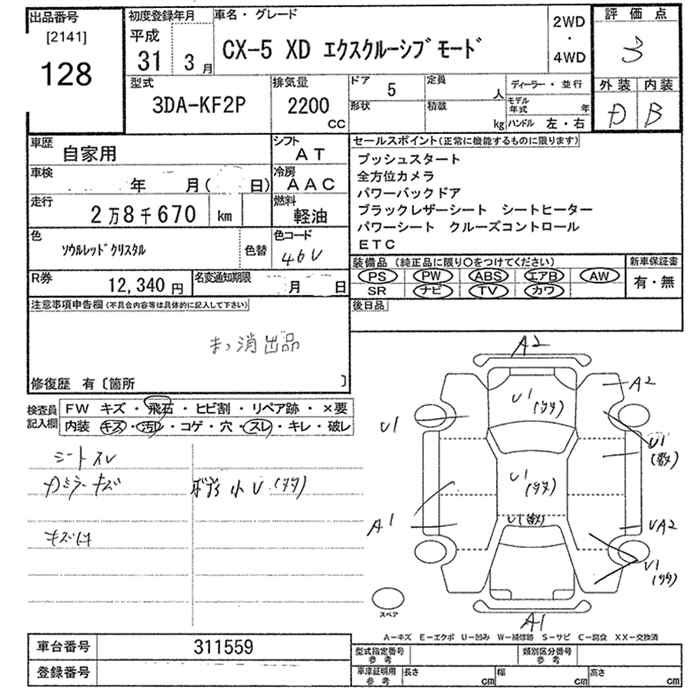 出品番号
[2141]
128
初度登録年月
平成
31年 3月
車名・グレード
CX-5 XD エクスクルーシブモード
2WD
・
4WD
評価点
3
外装 内装
D B
型式
3DA-KF2P
排気量
2200
CC
ドア 5
定員 人
形状
積載 kg
ディーラー・並行
モデル年式 年
ハンドル 左・右
車歴
自家用
シフト
AT
車検
年 月( 日)
冷房
AAC
走行
2万8千670 km
燃料
軽油
色
ソウルレッドクリスタル
色替
色コード
46V
R券
12,340円
名変通知期限
月 日
セールスポイント(正常に機能するものに限ります)
プッシュスタート
全方位カメラ
パワーバックドア
ブラックレザーシート シートヒーター
パワーシート クルーズコントロール
ETC
装備品(純正品に限り○をつけてください)
PS PW ABS エアB AW
SR ナビ TV カワ
新車保証書
有・無
後日品
注意事項申告欄(不具合内容等は具体的に記入して下さい)
まっ消出品
修復歴 有〔箇所 〕
検査員
記入欄
FW キズ・飛石・ヒビ割・リペア跡・×要
内装 キズ・汚レ・コゲ・穴・スレ・キレ・破レ
シートスレ
カミラーキズ
ボディ小U(タタ)
A2
U1
(タタ)
A2
U1
U1
(タタ)
U1
U1
A1
UA2
U1
(タタ)
A1
スペア
A-キズ E-エクボ U-凹み W-補修跡 S-サビ C-腐食 XX-交換済
車台番号
311559
登録番号
型式指定番号
参考
類別区分番号
参考
車庫証明用
参考
長さ cm
幅 cm
高さ cm